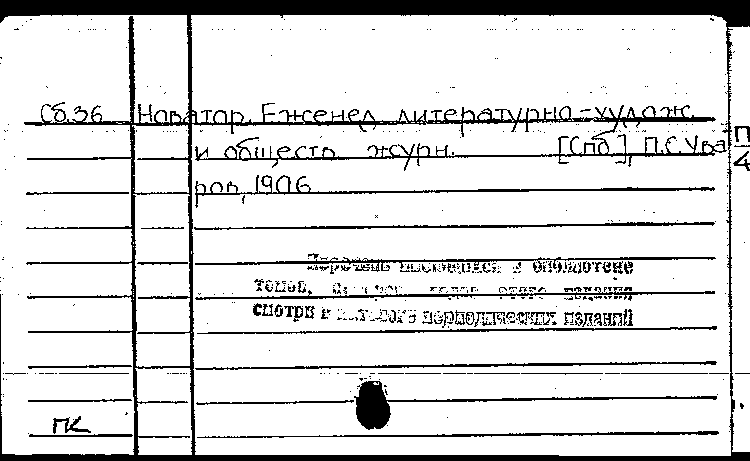 Сб.36 Новатор. Еженед литературно-худож.
и обществ журн. [Спб], П.С.Ува
ров, 1906
Перечень имеющихся в библиотеке
томов, этого издания
смотри в каталоге периодических изданий
ПК
П
4